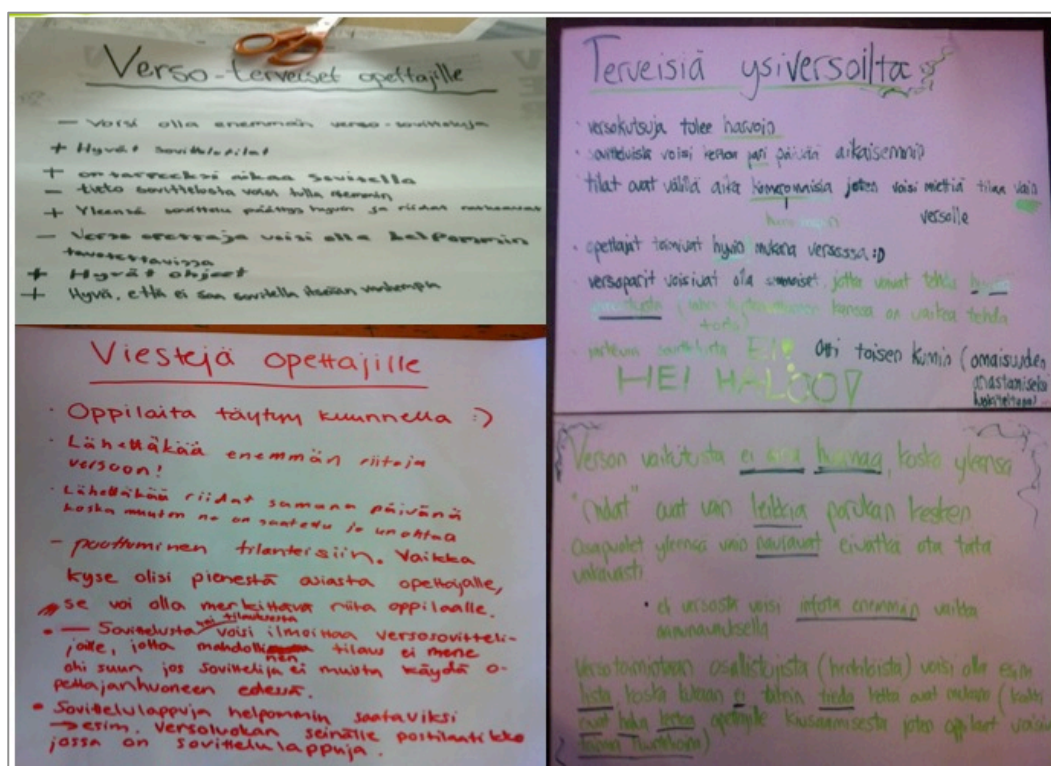 Verso-terveiset opettajille
- Voisi olla enemmän verso-sovitteluja
+ Hyvät sovittelutilat
+ on tarpeeksi aikaa sovitella
- tieto sovittelusta voisi tulla aiemmin
+ Yleensä sovittelu päättyy hyvin ja riidat ratkeavat
- Verso opettaja voisi olla helpommin
tavoitettavissa
+ Hyvät ohjeet
+ Hyvä, että ei saa sovitella itseään vanhempia
Viestejä opettajille
· Oppilaita täytyy kuunnella :)
· Lähettäkää enemmän riitoja
versoon!
· Lähettäkää riidat samana päivänä
koska muuten ne on saatettu jo unohtaa
- puuttuminen tilanteisiin. Vaikka
kyse olisi pienestä asiasta opettajalle,
se voi olla merkittävä riita oppilaalle.
· - Sovittelusta voisi ilmoittaa versosovitteli-
joille, jotta mahdollinen tilaus ei mene
ohi suun jos sovittelija ei muista käydä o-
pettajanhuoneen edessä.
· Sovittelulappuja helpommin saataviksi
→ esim. Versoluokan seinälle postilaatikko
jossa on sovittelulappuja.
Terveisiä ysiversoilta
· versokutsuja tulee harvoin
· sovitteluista voisi kertoa pari päivää aikaisemmin
tilat ovat välillä aika joten voisi miettiä tilan vain
versolle
· opettajat toimivat hyvin mukana versossa :D
· versoparit voisivat olla sellaiset, jotka voivat tehdä hyvää
kanssa on vaikea tehdä
töitä)
· sovittelusta EI! Otti toisen kumin (omaisuuden
anastamiseksi
luokiteltuna)
HEI HALOO!
Verson vaikutusta ei aina huomaa, koska yleensä
"riidat" ovat vain leikkiä porukan kesken
Osapuolet yleensä vain nauravat eivätkä ota tätä
vakavasti
· eli versosta voisi infota enemmän vaikka
aamunavauksella
Versotoimintaan osallistujista (henkilöistä) voisi olla esim
lista, koska kukaan ei tiedä ketkä ovat mukana (kaikki
eivät halua kertoa opettajille kiusaamisesta joten oppilaat voisivat